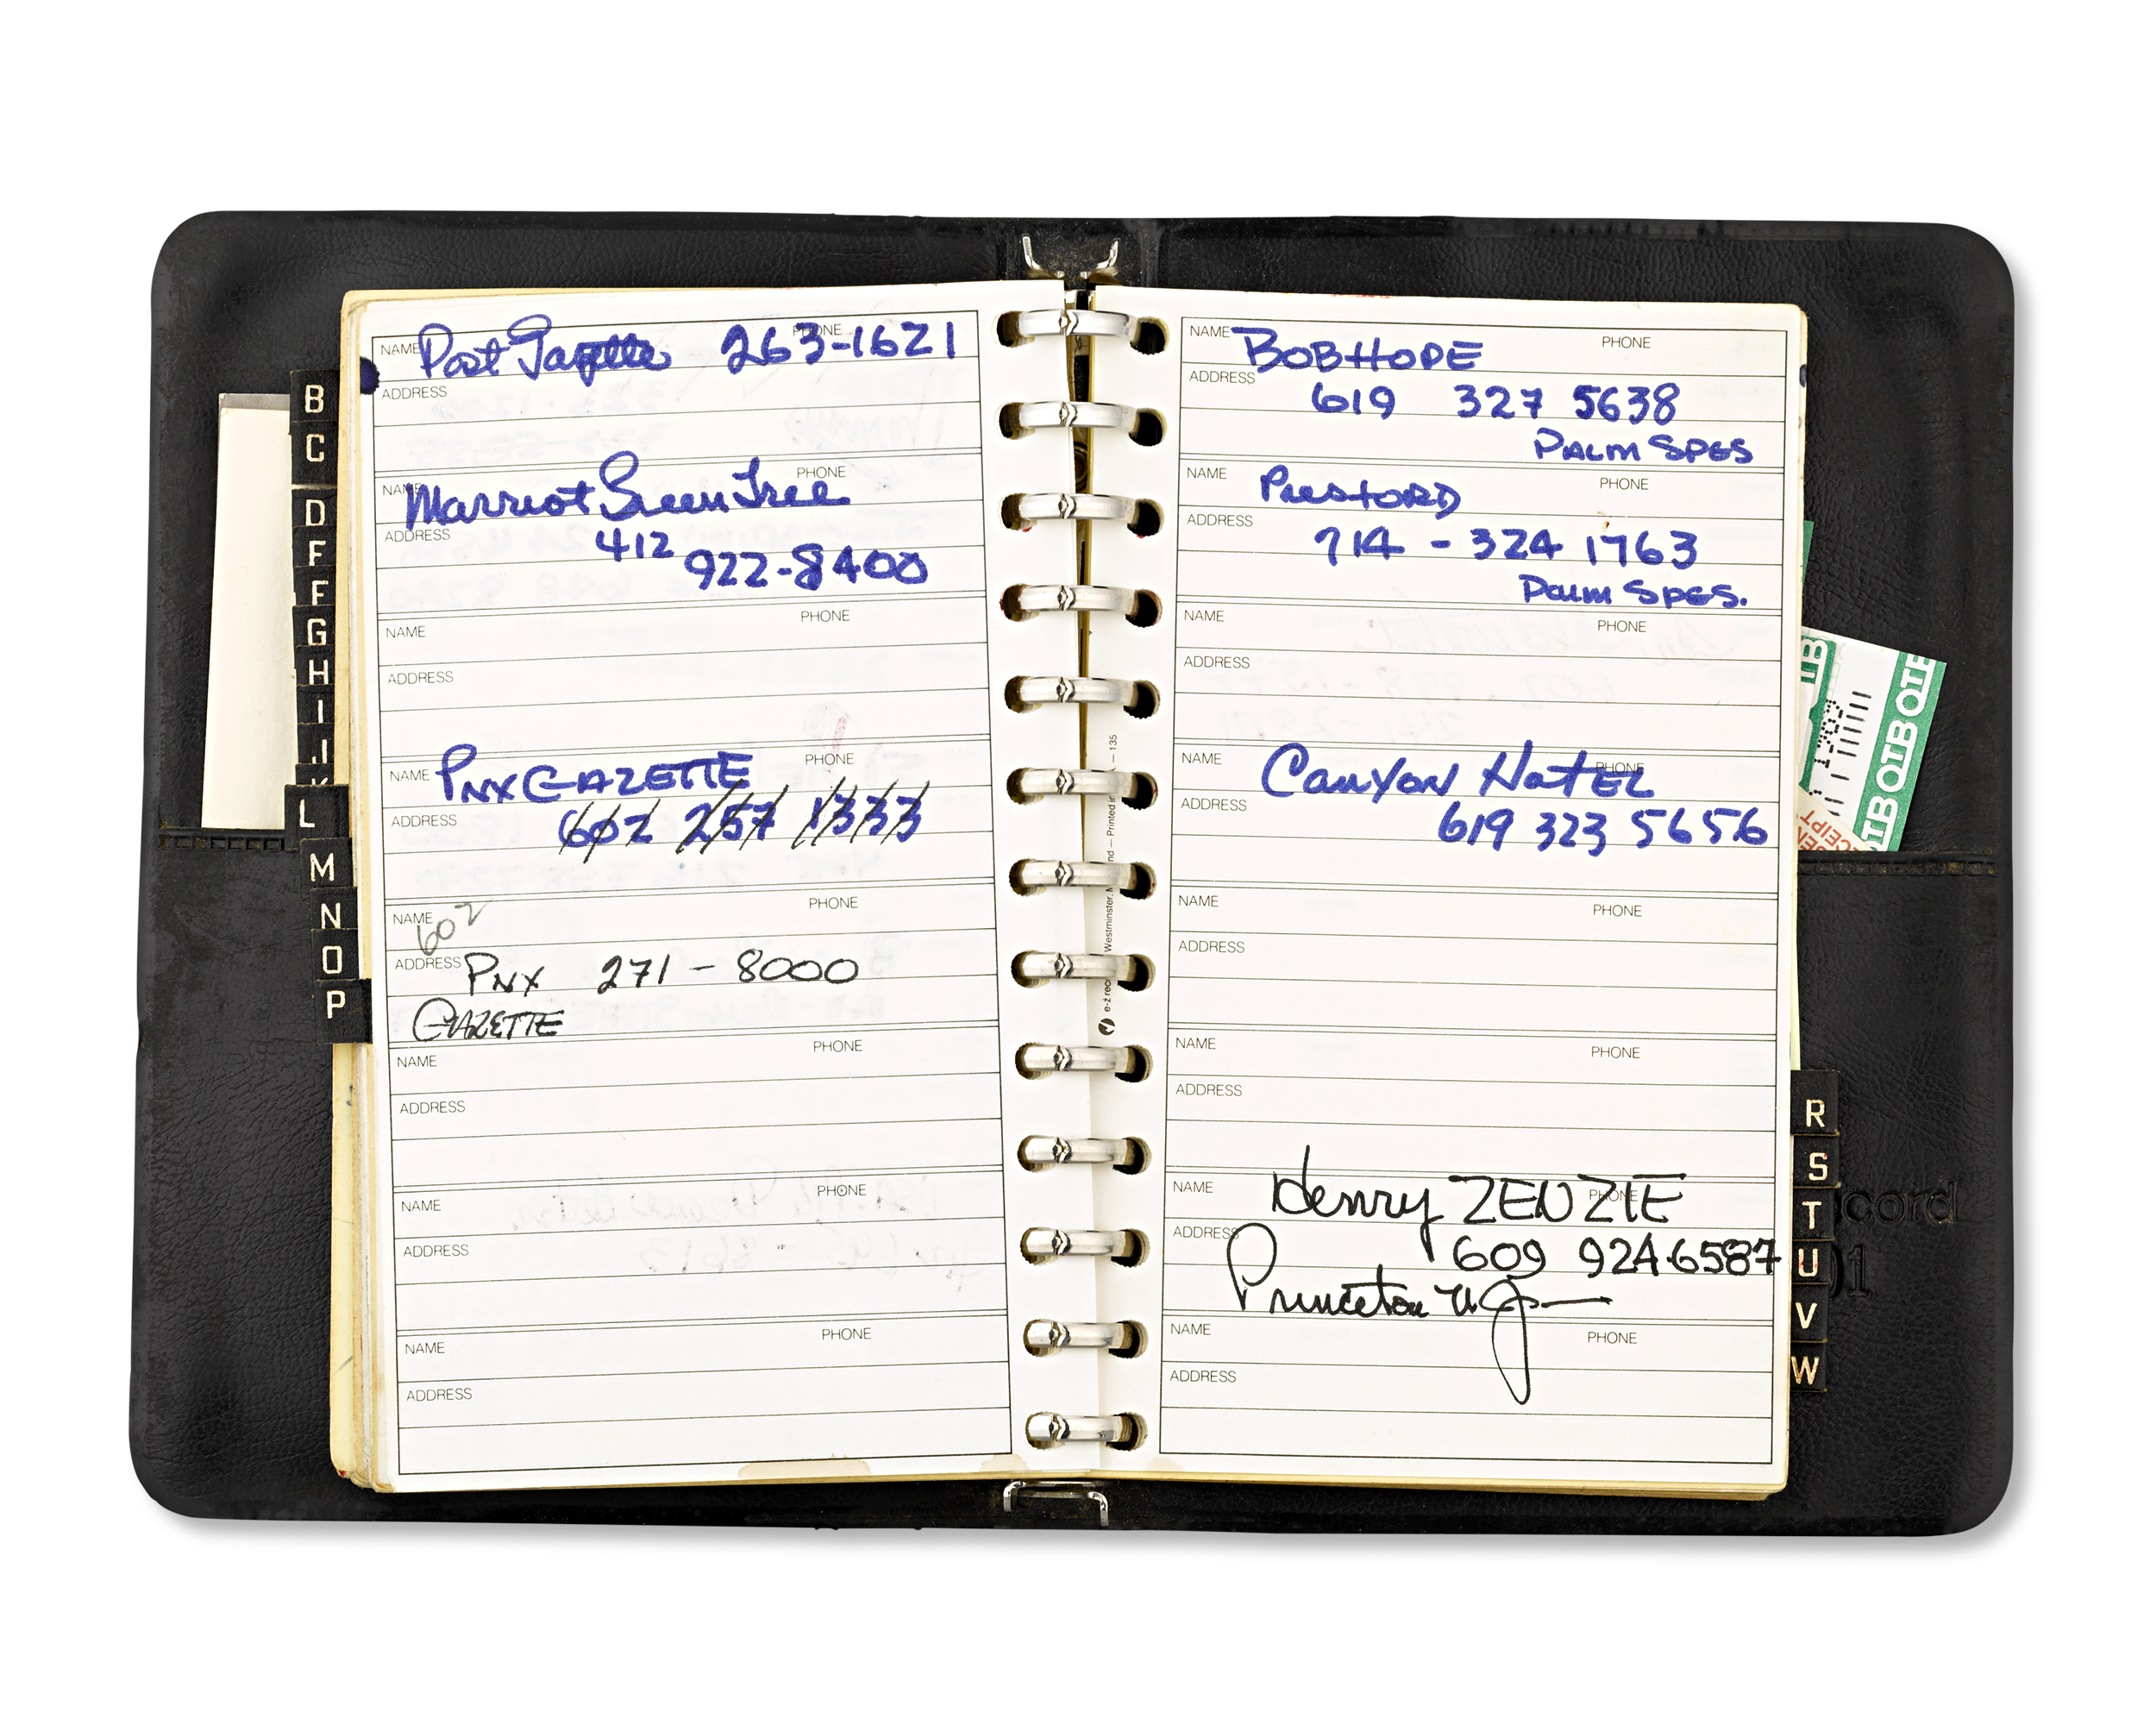 B
C
D
F
F
G
H
I
J
K
L
M
N
O
P
NAME Post Gazette PHONE 263-1621
ADDRESS
NAME Marriot Green Tree PHONE
ADDRESS 412
922-8400
NAME PHONE
ADDRESS
NAME PNX GAZETTE PHONE
ADDRESS 602 257 1333
NAME 602 PHONE
ADDRESS PNX 271-8000
GAZETTE
NAME PHONE
ADDRESS
NAME PHONE
ADDRESS
NAME PHONE
ADDRESS
Westminster, — Printed in — 135
NAME BOB HOPE PHONE
ADDRESS 619 327 5638
PALM SPGS
NAME PHONE
ADDRESS 714 - 324 1763
Palm SPGS.
NAME PHONE
ADDRESS
NAME CANYON HOTEL PHONE
ADDRESS 619 323 5656
NAME PHONE
ADDRESS
NAME PHONE
ADDRESS
NAME Henry ZENZIE PHONE
ADDRESS 609 924.6587
Princeton NJ —
NAME PHONE
ADDRESS
R
S
T
U
V
W
OTB OTB OTB
cord
01